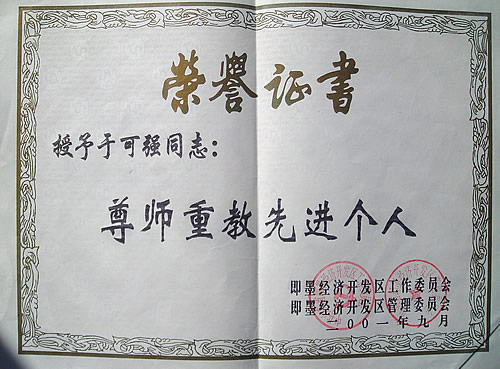 荣誉证书
授予于可强同志：
尊师重教先进个人
即墨经济开发区工作委员会
即墨经济开发区管理委员会
二00一年九月